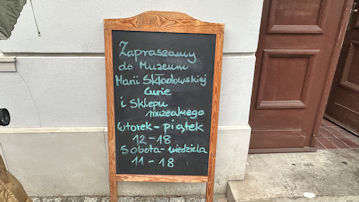 Zapraszamy
do Muzeum
Marii Skłodowskiej
Curie
i Sklepu
muzealnego
Wtorek - piątek
12 - 18
Sobota - niedziela
11 - 18